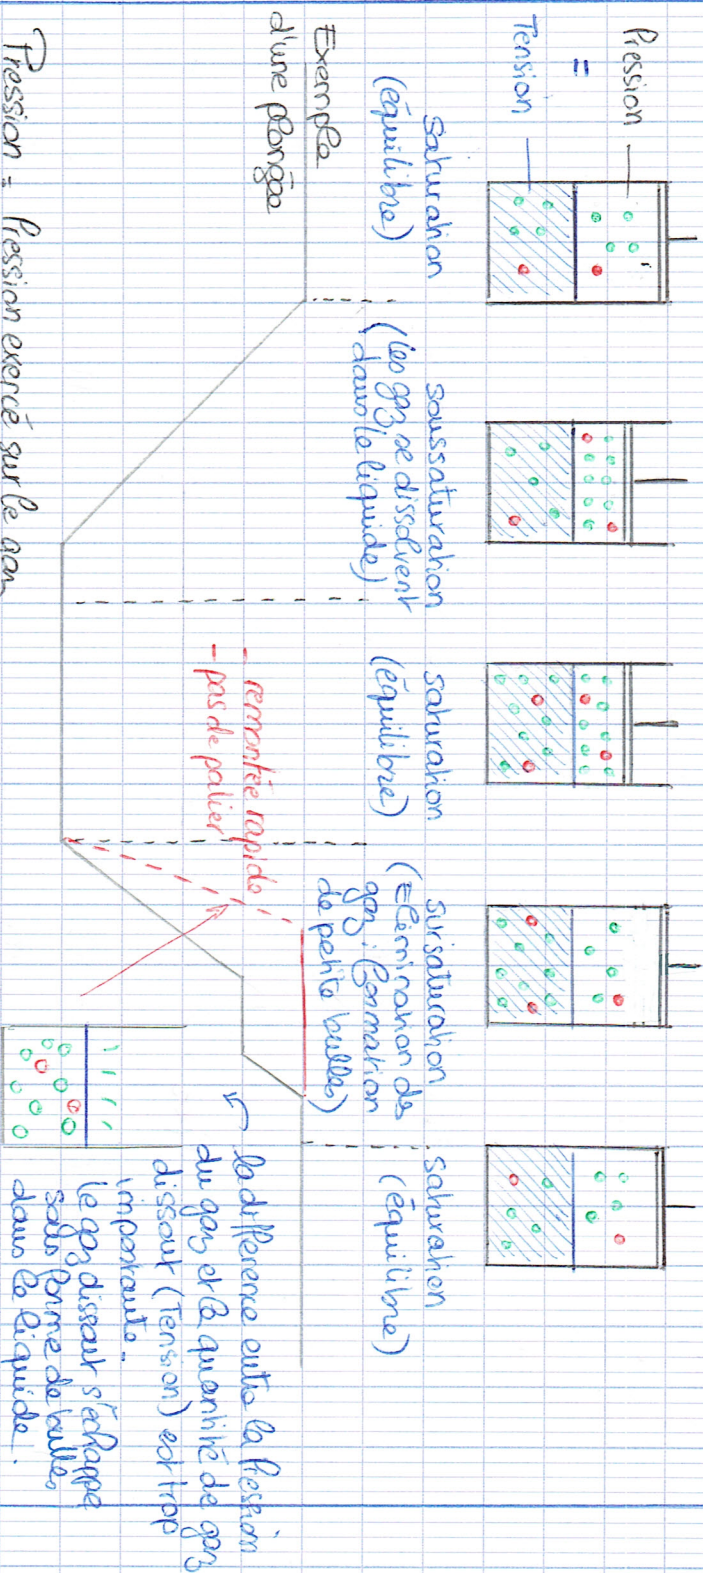 Pression
=
Tension
saturation
(équilibre)
soussaturation
(les gaz se dissolvent
dans le liquide)
saturation
(équilibre)
sursaturation
(Elimination des
gaz : formation
de petite bulles)
saturation
(équilibre)
Exemple
d'une plongée
- remontée rapide
- pas de palier
la différence entre la Pression
du gaz et la quantité de gaz
dissout (Tension) est trop
importante.
le gaz dissout s'échappe
sous forme de bulles
dans le liquide.
Pression = Pression exercé sur le